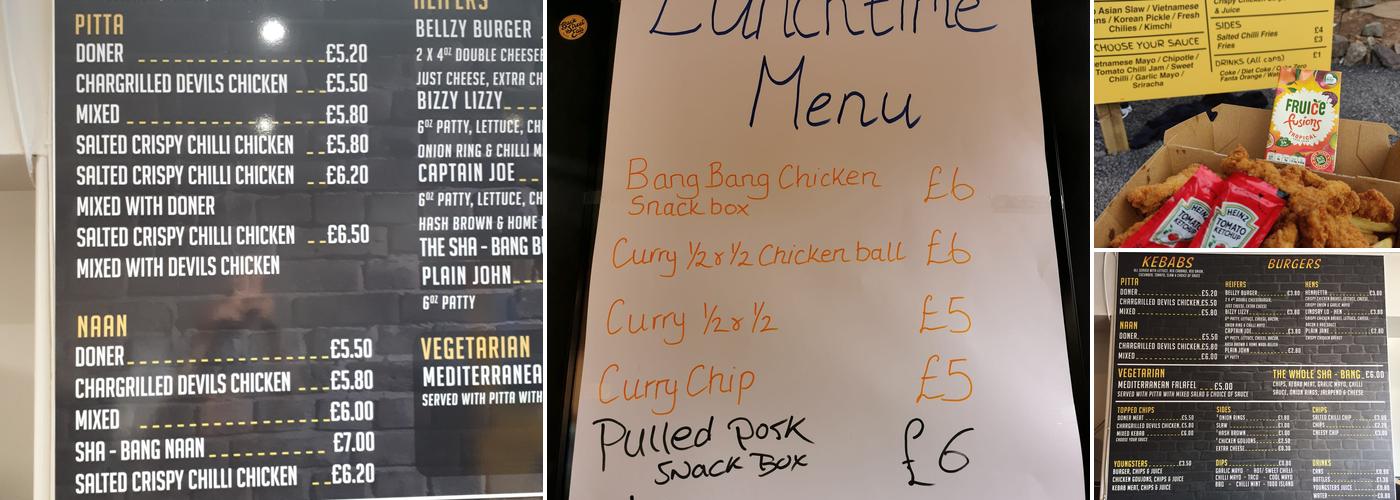 PITTA
DONER £5.20
CHARGRILLED DEVILS CHICKEN £5.50
MIXED £5.80
SALTED CRISPY CHILLI CHICKEN £5.80
SALTED CRISPY CHILLI CHICKEN £6.20
MIXED WITH DONER
SALTED CRISPY CHILLI CHICKEN £6.50
MIXED WITH DEVILS CHICKEN
NAAN
DONER £5.50
CHARGRILLED DEVILS CHICKEN £5.80
MIXED £6.00
SHA - BANG NAAN £7.00
SALTED CRISPY CHILLI CHICKEN £6.20
HEIFERS
BELLZY BURGER
2 X 4OZ DOUBLE CHEESE
JUST CHEESE, EXTRA CH
BIZZY LIZZY
6OZ PATTY, LETTUCE, CH
ONION RING & CHILLI M
CAPTAIN JOE
6OZ PATTY, LETTUCE, CH
HASH BROWN & HOME
THE SHA - BANG BU
PLAIN JOHN
6OZ PATTY
VEGETARIAN
MEDITERRANEA
SERVED WITH PITTA WITH
Lunchtime
Menu
Bang Bang Chicken
Snack box £6
Curry ½ & ½ Chicken ball £6
Curry ½ & ½ £5
Curry Chip £5
Pulled Pork
Snack Box £6
Asian Slaw / Vietnamese
ens / Korean Pickle / Fresh
Chilies / Kimchi
CHOOSE YOUR SAUCE
etnamese Mayo / Chipotle /
Tomato Chilli Jam / Sweet
Chilli / Garlic Mayo /
Sriracha
& Juice
SIDES
Salted Chilli Fries £4
Fries £3
DRINKS (All cans) £1
Coke / Diet Coke / Coke Zero
FRUICE
fusions
TROPICAL
HEINZ
TOMATO
KETCHUP
HEINZ
TOMATO
KETCHUP
KEBABS
BURGERS
PITTA
DONER £5.20
CHARGRILLED DEVILS CHICKEN £5.50
MIXED £5.80
NAAN
DONER £5.50
CHARGRILLED DEVILS CHICKEN £5.80
MIXED £6.00
HEIFERS
BELLZY BURGER £3.80
BIZZY LIZZY £3.80
CAPTAIN JOE £3.80
PLAIN JOHN £2.80
HENS
HENRIETTA £3.80
LINDSAY LO - HEN £3.80
PLAIN JANE £2.80
VEGETARIAN
MEDITERRANEAN FALAFEL £5.00
SERVED WITH PITTA WITH MIXED SALAD & CHOICE OF SAUCE
THE WHOLE SHA - BANG £6.00
CHIPS, KEBAB MEAT, GARLIC MAYO, CHILLI
SAUCE, ONION RINGS, JALAPENO & CHEESE
TOPPED CHIPS
DONER MEAT £5.50
CHARGRILLED DEVILS CHICKEN £5.80
MIXED KEBAB £6.00
CHOOSE YOUR SAUCE
SIDES
ONION RINGS
SLAW
HASH BROWN
CHICKEN GOUJONS
EXTRA CHEESE
CHIPS
SALTED CHILLI CHIP
CHIPS
CHEESY CHIP
YOUNGSTERS £3.50
BURGER, CHIPS & JUICE
CHICKEN GOUJONS, CHIPS & JUICE
KEBAB MEAT, CHIPS & JUICE
DIPS
GARLIC MAYO - HOT/ SWEET CHILLI
CHILLI MAYO - TACO - COOL MAYO
BBQ - CHILLI MINT - 1000 ISLAND
DRINKS
CANS
BOTTLES
YOUNGSTERS JUICE